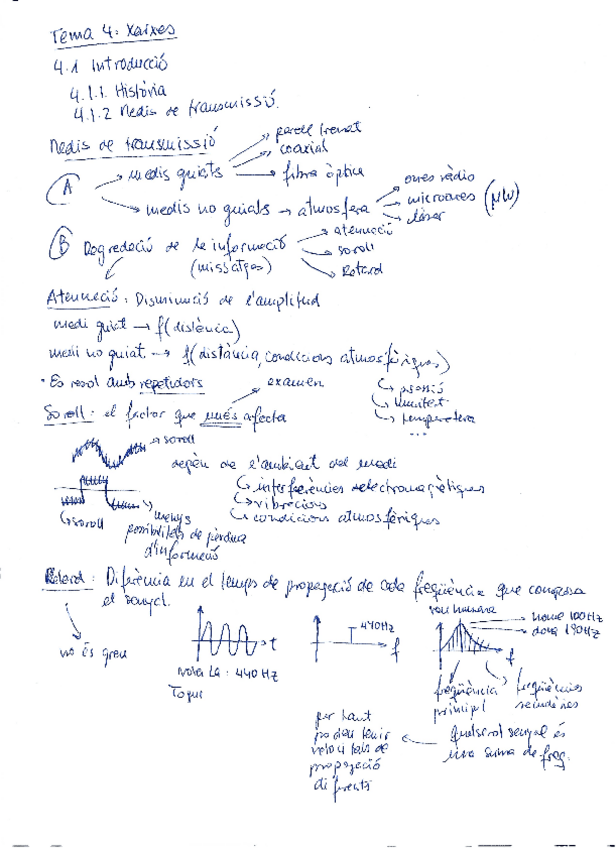 Tema 4: Xarxes
4.1 Introducció
4.1.1. Història
4.1.2 Medis de transmissió.
Medis de transmissió
parell trenat
coaxial
A → medis guiats → fibra òptica
ones ràdio
→ medis no guiats → atmosfera → microones (MW)
làser
atenuació
B Degradació de la informació → soroll
(missatges) Retard
Atenuació: Disminució de l'amplitud
medi guiat → f(distància)
medi no guiat → f(distància, condicions atmosfèriques)
• Es resol amb repetidors
examen
pressió
humitat
temperatura
...
Soroll: el factor que més afecta
→ soroll
depèn de l'ambient del medi
interferències electromagnètiques
vibracions
condicions atmosfèriques
soroll
menys
possibilitats de pèrdua
d'informació
Retard: Diferència en el temps de propagació de cada freqüència que composa
el senyal.
no és greu
t
nota La: 440 Hz
440Hz
f
veu humana
home 100Hz
dona 190Hz
f
freqüència
principal
freqüències
secundàries
Qualsevol senyal és
una suma de freq.
per tant
poden tenir
velocitats de
propagació
diferents